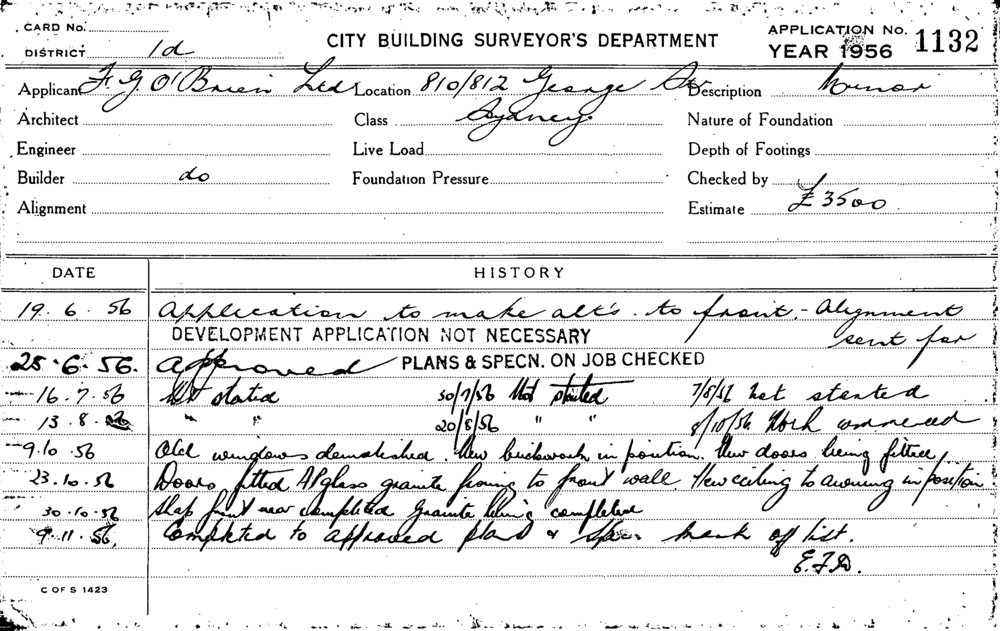 CARD No.
DISTRICT 1d
CITY BUILDING SURVEYOR'S DEPARTMENT
APPLICATION No. 1132
YEAR 1956
Applicant F. G. O'Brien Ltd Location 810/812 George St Description Minor
Architect Class Sydney. Nature of Foundation
Engineer Live Load Depth of Footings
Builder do Foundation Pressure Checked by
Alignment Estimate £3500
DATE HISTORY
19.6.56 Application to make alt's. to front. - Alignment
DEVELOPMENT APPLICATION NOT NECESSARY sent for
25.6.56. Approved PLANS & SPECN. ON JOB CHECKED
16.7.56 Not started 30/7/56 Not started 7/8/56 Not started
13.8.56 " " 20/8/56 " " 8/10/56 Work commenced
9.10.56 Old windows demolished. New brickwork in position. New doors being fitted
23.10.56 Doors fitted glass granite fixing to front wall New ceiling to awning in position
30.10.56 Shop front near completed Granite completed
9.11.56. Completed to approved plans & Spec. mark off list.
E.F.D.
C OF S 1423